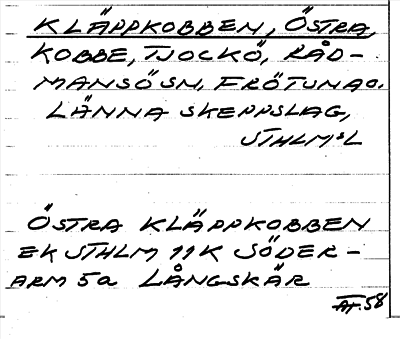 KLÄPPKOBBEN, ÖSTRA,
KOBBE, TJOCKÖ, RÅD-
MANSÖ SN, FRÖTUNA O.
LÄNNA SKEPPSLAG,
STHLMS L
ÖSTRA KLÄPPKOBBEN
EK STHLM 11K SÖDER-
ARM 5a LÅNGSKÄR
AF. 58